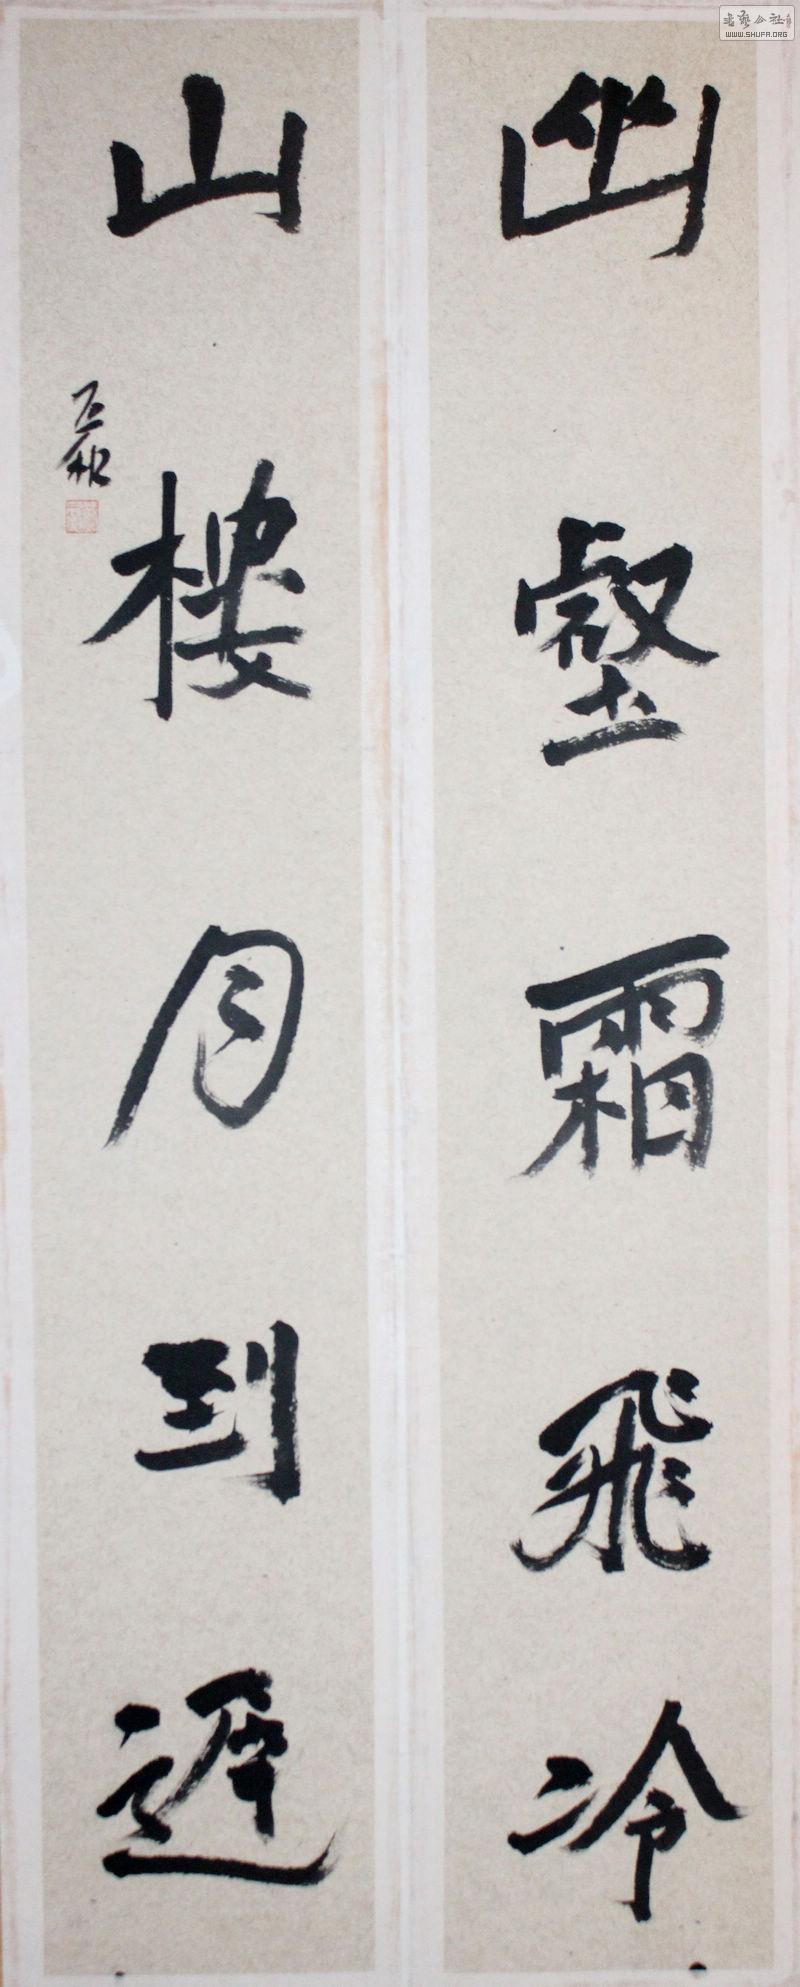 幽壑霜飛冷
山樓月到遲
书艺公社
WWW.SHUFA.ORG